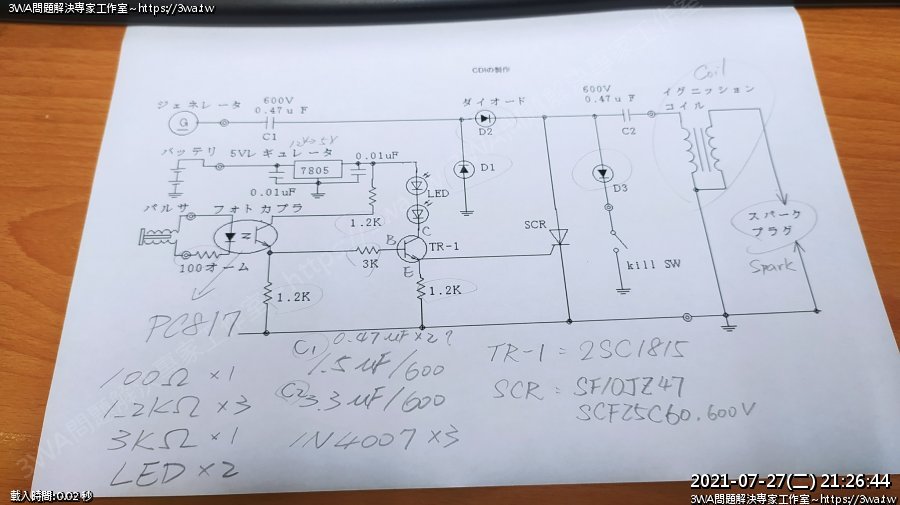 3WA問題解決專家工作室~https://3wa.tw
CDIの制作
ジェネレータ
G
600V
0.47uF
C1
ダイオード
D2
600V
0.47uF
C2
Coil
イグニッション
コイル
バッテリ
5Vレギュレータ
12V→5V
7805
0.01uF
0.01uF
LED
D1
D3
パルサ
フォトカプラ
1.2K
C
B
TR-1
E
SCR
kill SW
スパーク
プラグ
Spark
100オーム
3K
1.2K
1.2K
PC817
C1 0.47uF×2?
1.5uF/600
C2 3.3uF/600
100Ω ×1
1.2KΩ ×3
3KΩ ×1
LED ×2
1N4007 ×3
TR-1 = 2SC1815
SCR = SF10JZ47
SCF25C60.600V
2021-07-27(二) 21:26:44
載入時間:0.02 秒
3WA問題解決專家工作室~https://3wa.tw